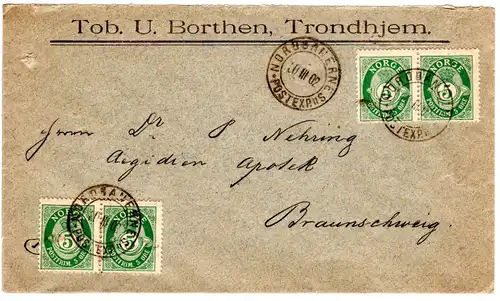 Tob. U. Borthen, Trondhjem.
NORDBANERNE
30 III 02
POSTEXP. B
NORGE NORGE
5 5
POSTFRIM. 5 ØRE
Herrn Dr S Nehring
Aegidien Apotek
Braunschweig.
NORDBANERNE
NORGE NORGE
5 5
POSTFRIM. 5 ØRE POSTFRIM. 5 ØRE